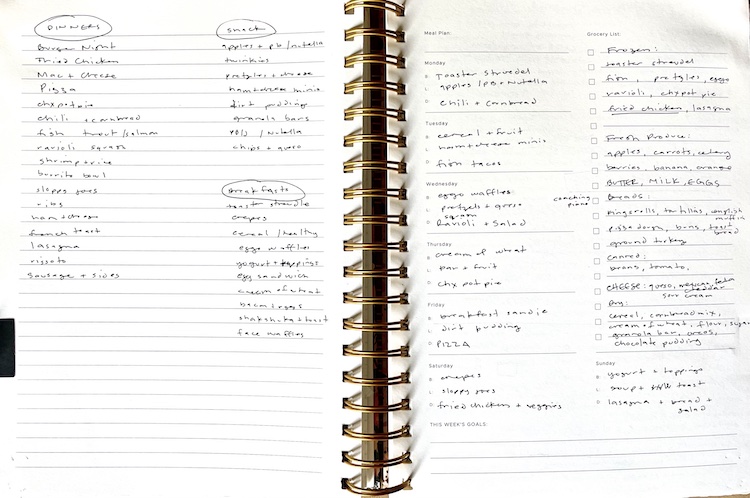 DINNERS
Burger Night
Fried Chicken
Mac + cheese
Pizza
chx pot pie
chili + cornbread
fish trout/salmon
ravioli squash
shrimp + rice
burrito bowl
sloppy joes
ribs
ham + cheese
french toast
lasagna
sausage + sides
snack
apples + pb / nutella
twinkies
pretzles + cheese
ham + cheese minis
dirt pudding
granola bars
/ Nutella
chips + queso
breakfasts
crepes
cereal / healthy
eggo waffles
yogurt + toppings
egg sandwich
cream of wheat
bacon + eggs
shakshuka + toast
face waffles
Meal Plan:
Monday
B Toaster Struedel
L apples / PB + Nutella
D chili + cornbread
Tuesday
B cereal + fruit
L ham + cheese minis
D fish tacos
Wednesday
B eggo waffles
L pretzels + queso
coaching
squash
D Ravioli + Salad
Thursday
B cream of wheat
L bar + fruit
D chx pot pie
Friday
B breakfast sandie
L dirt pudding
D PIZZA
Saturday
B crepes
L sloppy joes
D fried chicken + veggies
THIS WEEK'S GOALS:
Grocery List:
Frozen:
toaster struedel
fish, pretzles, eggo
ravioli, chx pot pie
fried chicken, lasagna
Fresh Produce:
apples, carrots, celery
berries, banana, orange
BUTTER, MILK, EGGS
Breads:
tortillas, english
muffin
pizza dough, buns, toast
bread
ground turkey
canned:
beans, tomato,
CHEESE: queso, mexican, feta
cheddar
sour cream
Dry:
cereal, cornbread mix,
cream of wheat, flour, sugar
granola bar, oreos,
chocolate pudding
Sunday
B yogurt + toppings
L soup + toast
D lasagna + bread +
salad